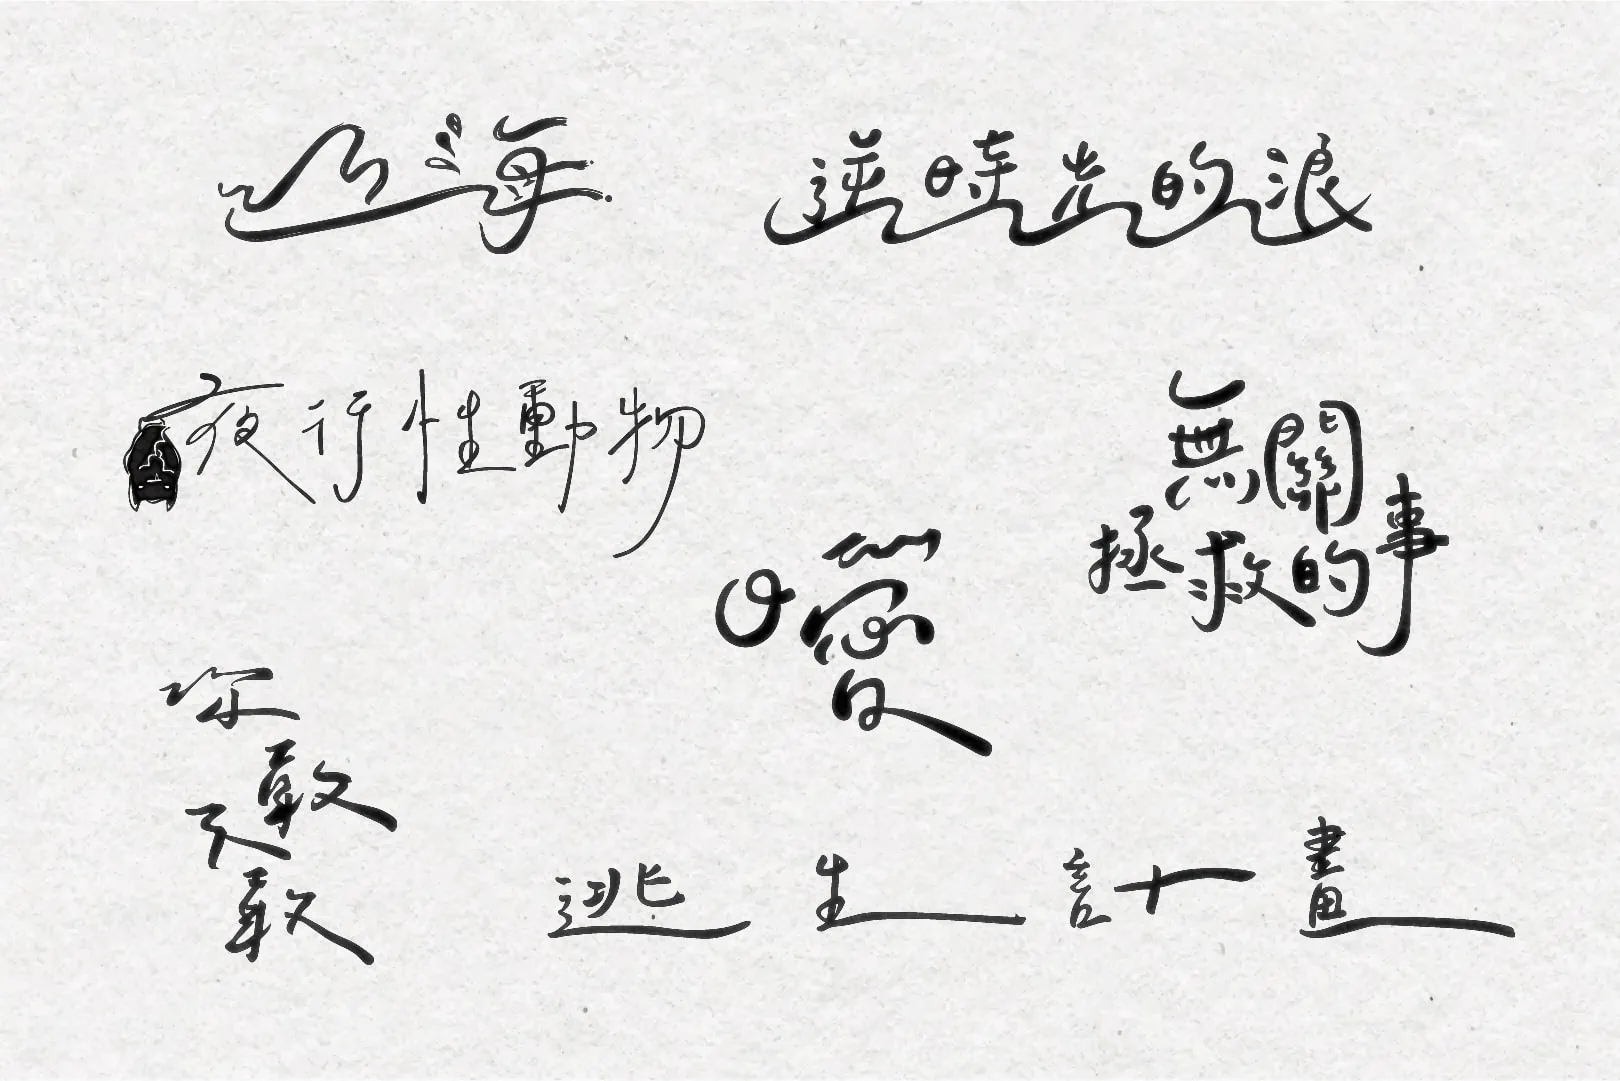 山海
逆時光的浪
夜行性動物
無關
拯救的事
曖
你
敢
不
敢
逃生計畫